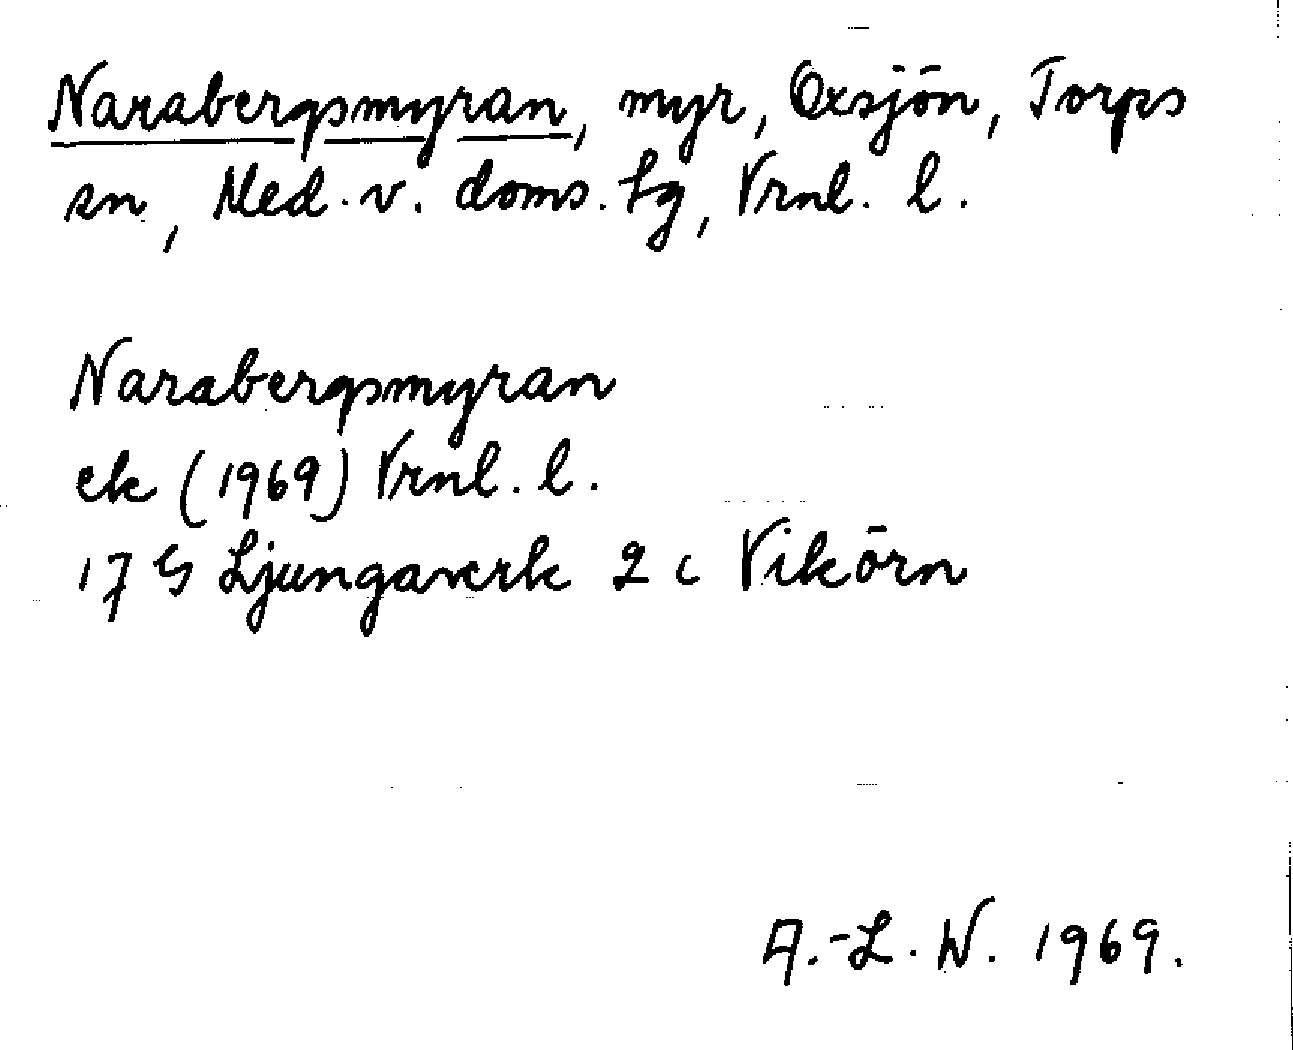 Narabergsmyran, myr, Oxsjön, Torps
sn, Med. v. doms. tg, Vrnl. l.
Narabergsmyran
ek (1969) Vrnl. l.
17 G Ljungaverk 2 c Vikörn
A.-L. W. 1969.